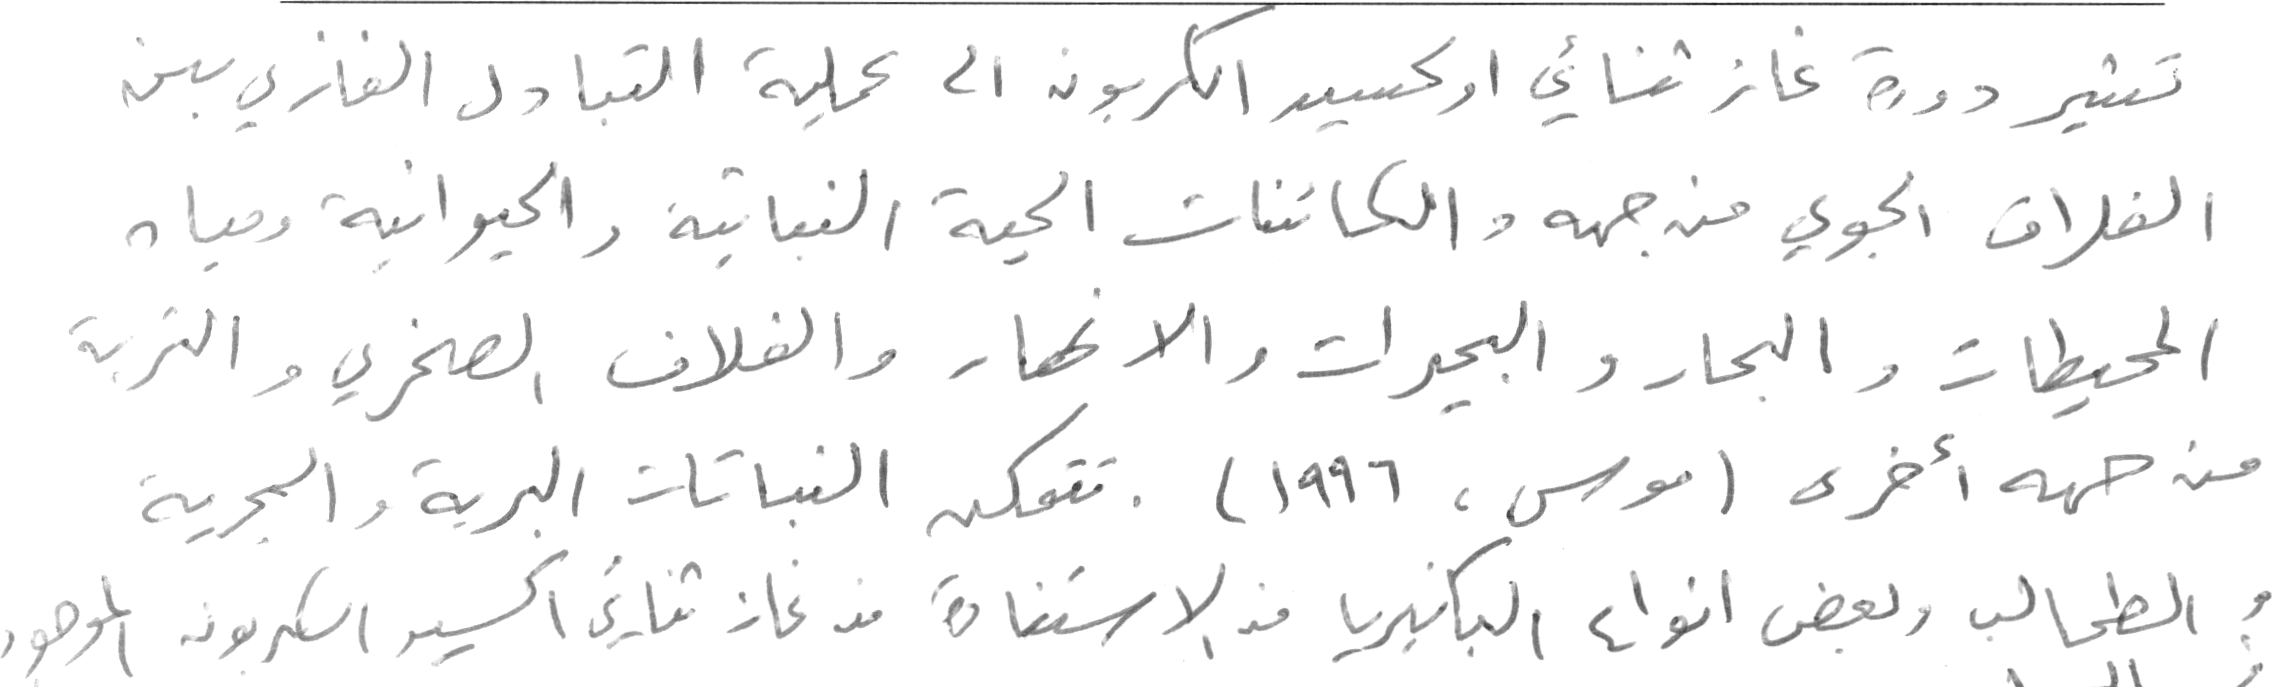 تشير دورة غاز ثنائي اوكسيد الكربون الى عملية التبادل الغازي بين
الغلاف الجوي من جهه والكائنات الحية النباتية والحيوانية ومياه
المحيطات والبحار والبحيرات والانهار والغلاف الصخري والتربة
من جهه أخرى (موسى، ١٩٩٦). تتمكن النباتات البرية والبحرية
والطحالب وبعض انواع البكتيريا من الاستفادة من غاز ثنائي اكسيد الكربون الموجود